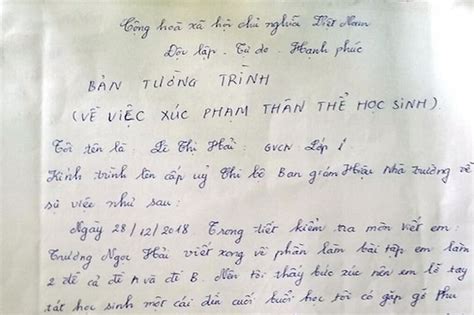 Cộng hoà xã hội chủ nghĩa Việt Nam
Độc lập - Tự do - Hạnh phúc
BẢN TƯỜNG TRÌNH
(VỀ VIỆC XÚC PHẠM THÂN THỂ HỌC SINH)
Tôi tên là : Lê Thị Hải : GVCN : Lớp 1
Kính trình lên cấp uỷ Chi bộ Ban giám Hiệu nhà trường về
sự việc như sau :
Ngày 28/12/2018 Trong tiết kiểm tra môn viết em :
Trương Ngọc Hải viết xong về phần làm bài tập em làm
2 đề cả đề A và đề B. Nên tôi thấy bức xúc nên em lỡ tay
tát học sinh một cái đến cuối buổi học tôi có gặp gỡ Phụ